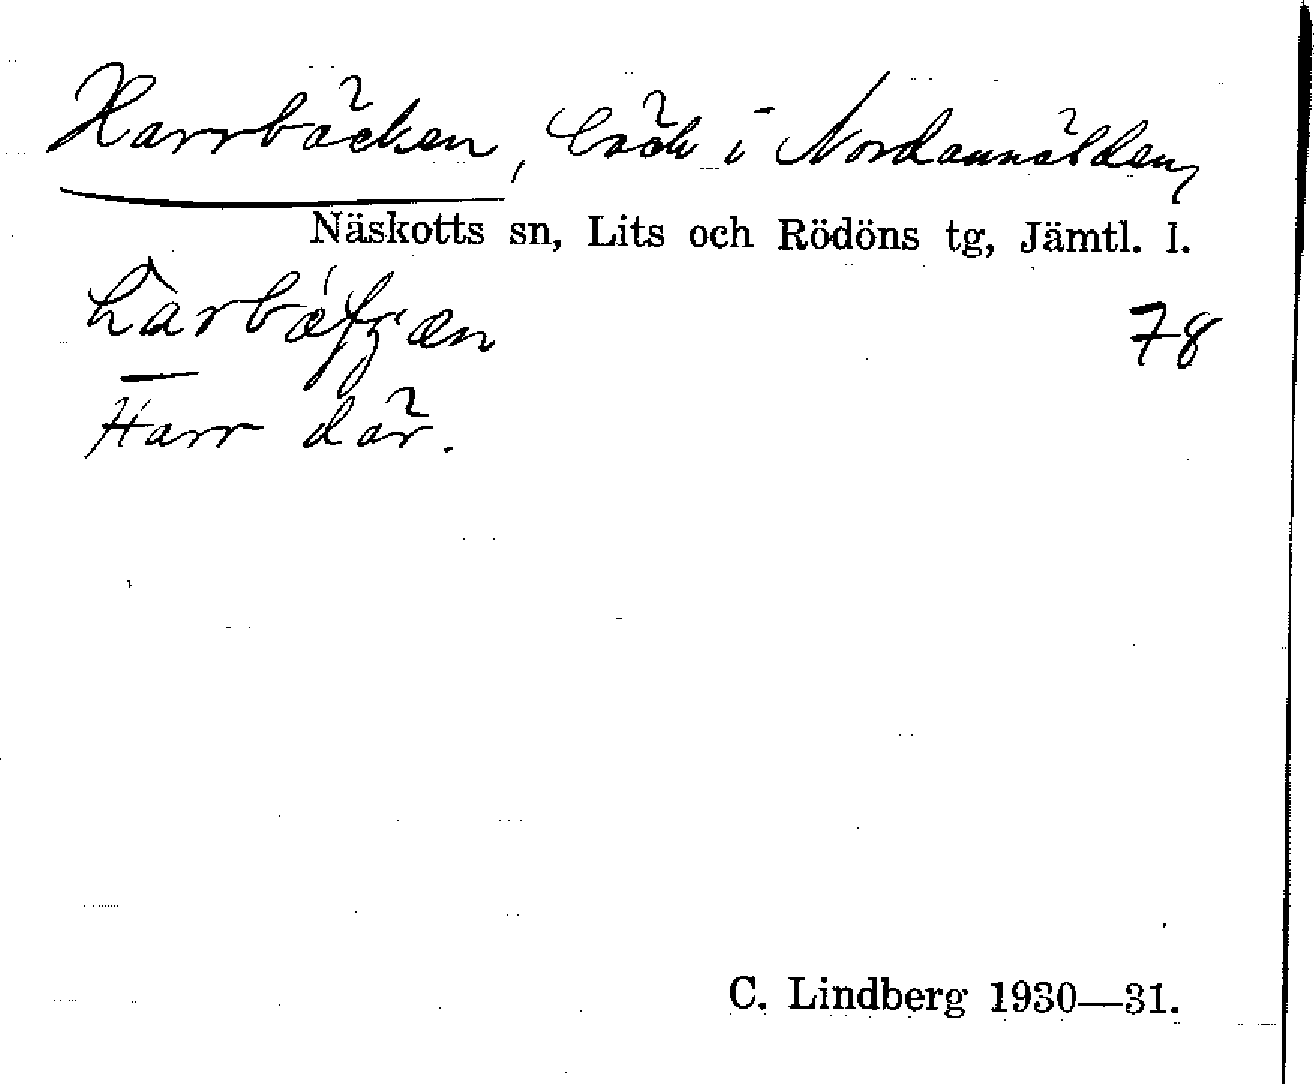 Harrbäcken, bäck i Nordannälden,
Näskotts sn, Lits och Rödöns tg, Jämtl. l.
78
Harr där.
C. Lindberg 1930—31.